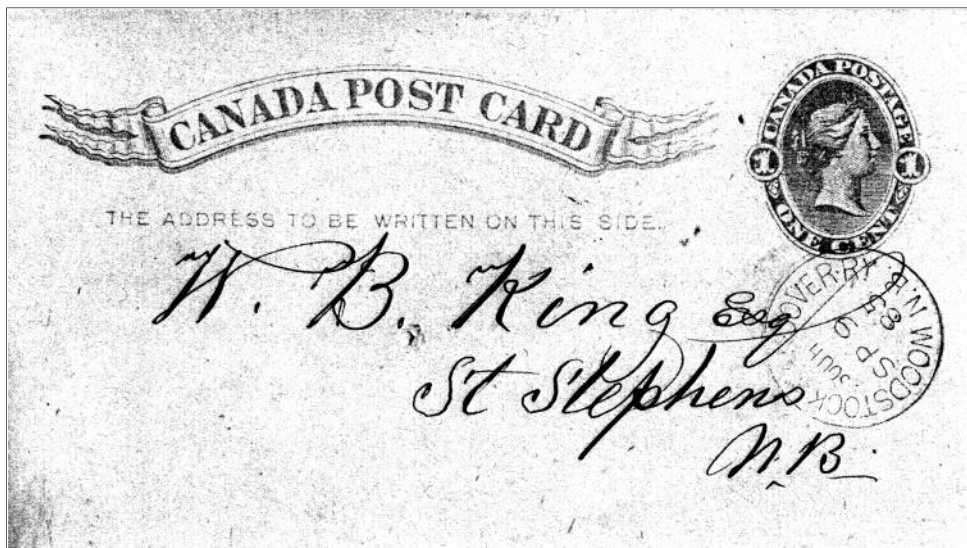 CANADA POST CARD
CANADA POSTAGE
1 1
ONE CENT
THE ADDRESS TO BE WRITTEN ON THIS SIDE.
W. B. King Esq
St Stephens
N.B.
WOODSTOCK
N.B.
RY
SOUTH
SP 9
83